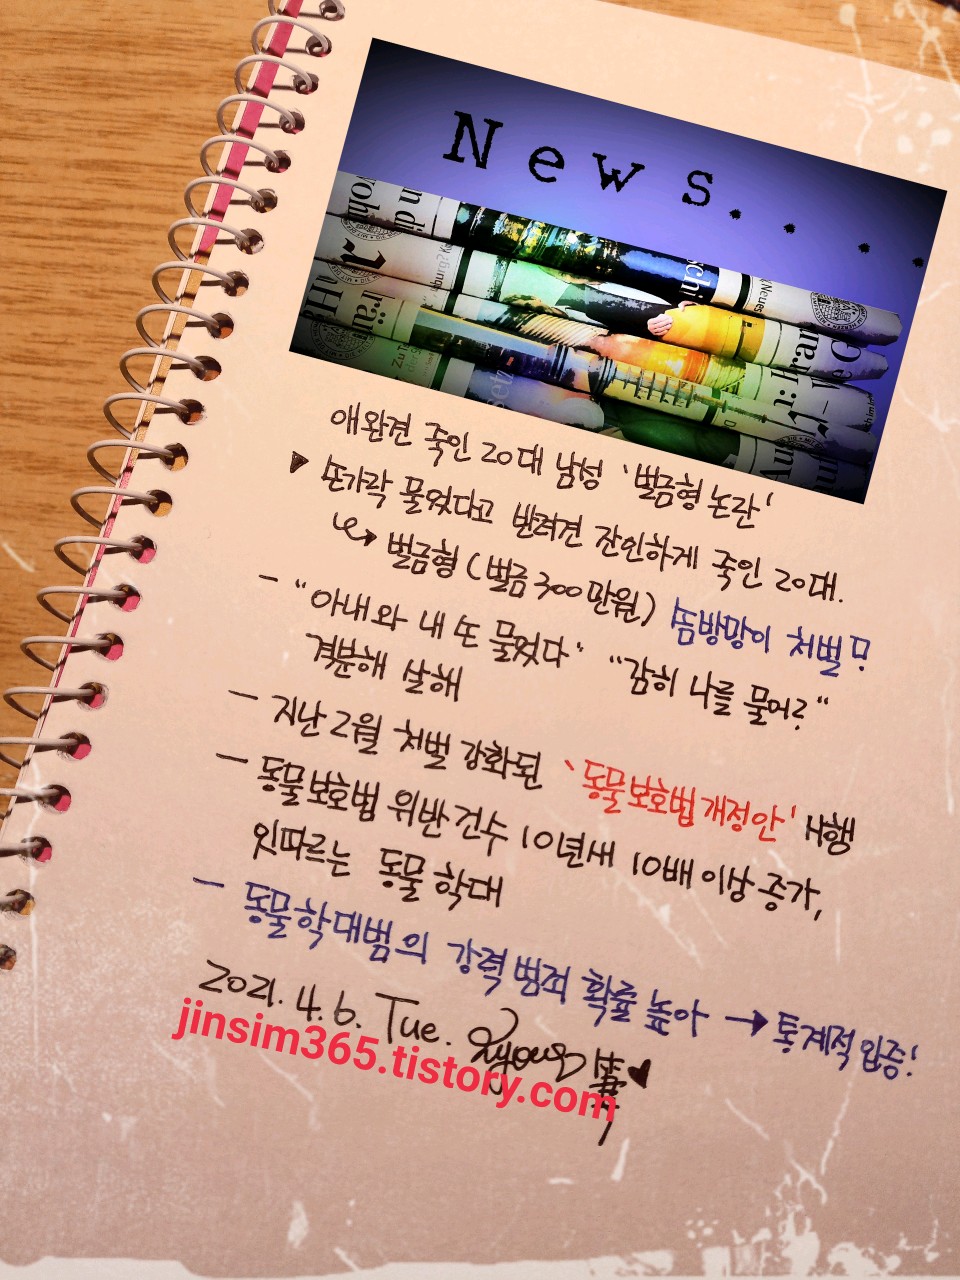 News....
애완견 죽인 20대 남성 '벌금형 논란'
▶ 손가락 물었다고 반려견 잔인하게 죽인 20대.
↪ 벌금형 (벌금 300만원) 솜방망이 처벌!!
- "아내와 내 손 물었다" "감히 나를 물어?"
격분해 살해
- 지난 2월 처벌 강화된 '동물보호법 개정안' 시행
- 동물보호법 위반 건수 10년새 10배 이상 증가,
잇따르는 동물 학대
- 동물학대범의 강력 범죄 확률 높아 → 통계적 입증!
2021. 4. 6. Tue.
jinsim365.tistory.com